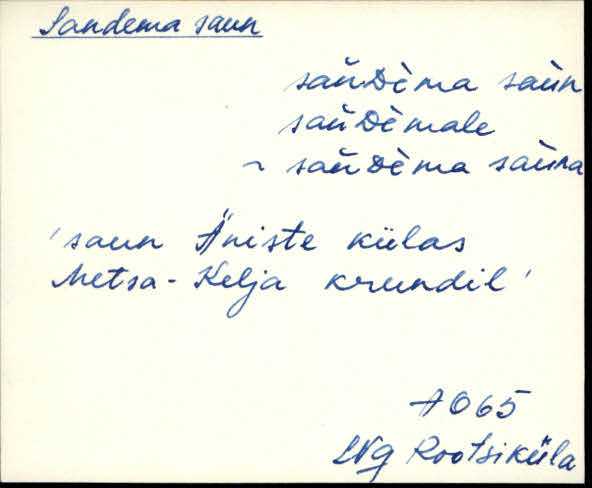 Sandema saun
sän̆Dèma sàün
sän̆Dèmale
~ sän̆Dèma sàüna
'saun Äniste külas
Metsa-Kelja krundil'
AO65
LNg Rootsiküla